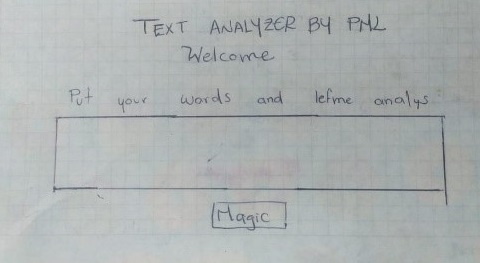 TEXT ANALYZER BY PML
Welcome
Put your words and letme analys
Magic